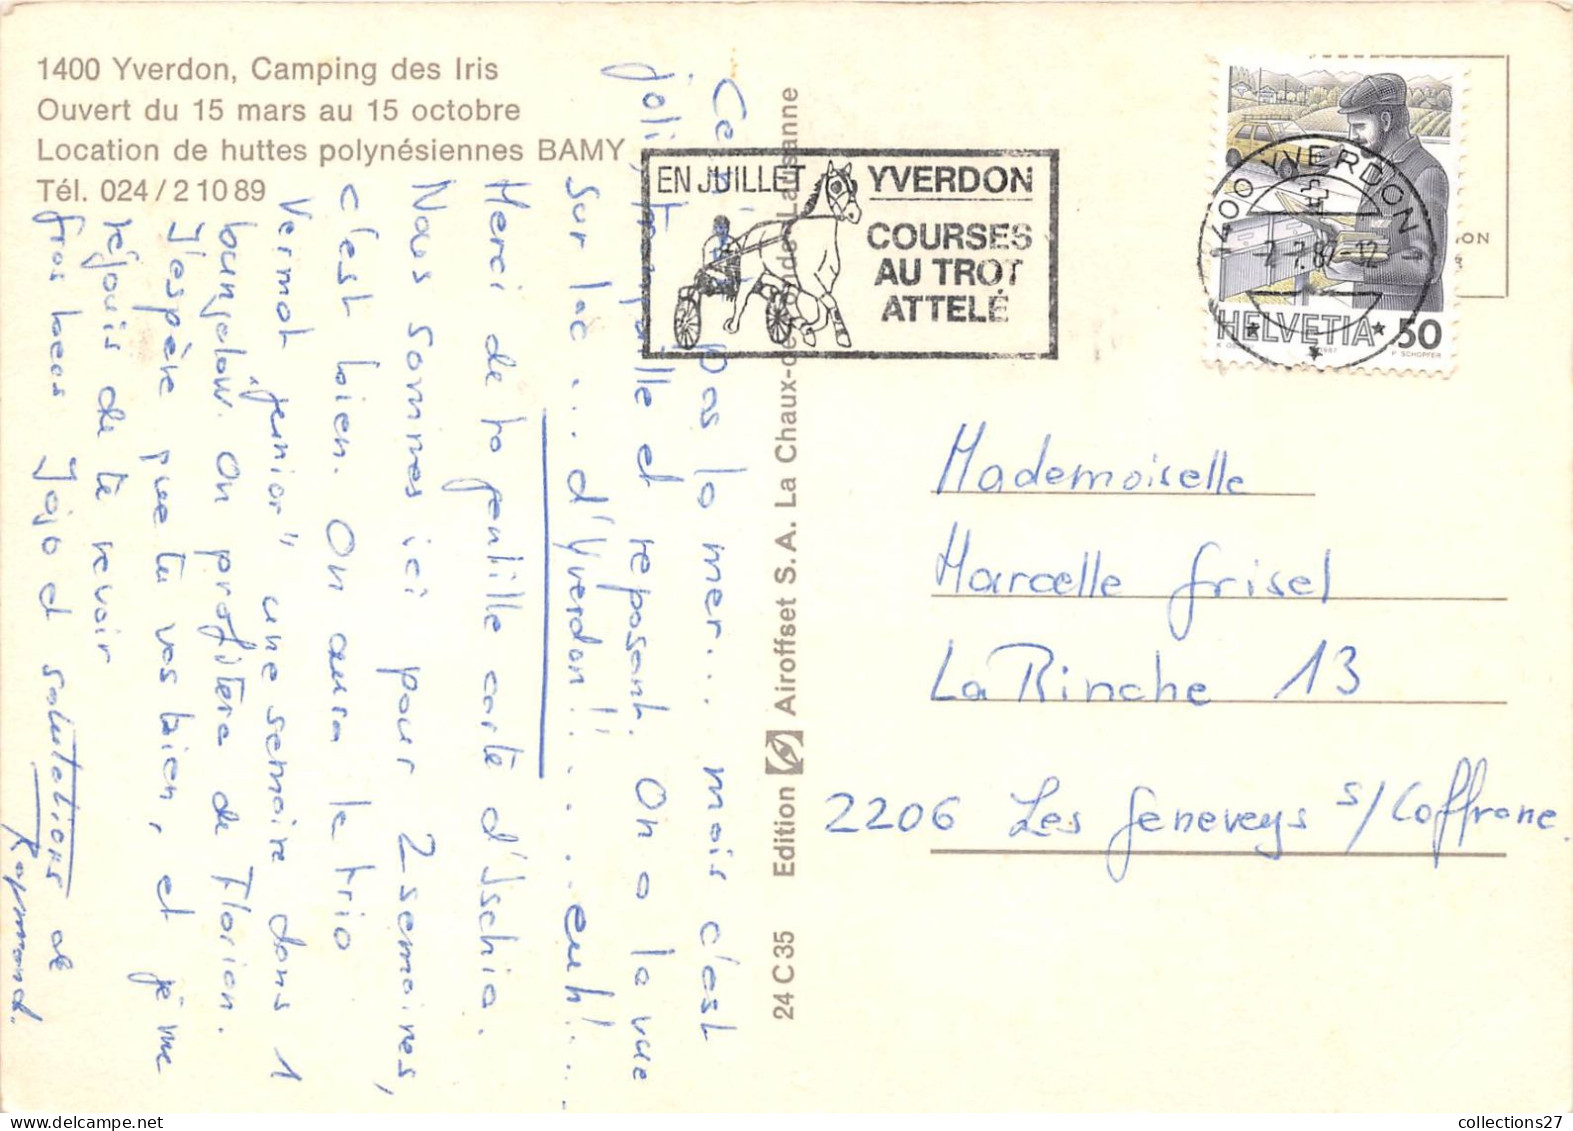 1400 Yverdon, Camping des Iris
Ouvert du 15 mars au 15 octobre
Location de huttes polynésiennes BAMY
Tél. 024/2 10 89
Ce n'est pas la mer... mais c'est
joli, tranquille et reposant. On a la vue
sur lac... d'Yverdon!!.... euh!...
Merci de ta gentille carte d'Ischia.
Nous sommes ici pour 2 semaines,
c'est bien. On aura le trio
Vermot "junior" une semaine dans 1
bungalow. On profitera de Florian.
J'espère que tu vas bien, et je me
réjouis de te revoir
Gros becs Jojo et salutations de
Raymond.
24 C 35 Edition Airoffset S.A. La Chaux-de-Fonds Lausanne
EN JUILLET YVERDON
COURSES
AU TROT
ATTELÉ
1400 YVERDON 1
7.7.87-12
HELVETIA 50
1987 P. SCHOPFER
ON
Mademoiselle
Marcelle Grisel
La Rinche 13
2206 Les Geneveys s/Coffrane.
collections27